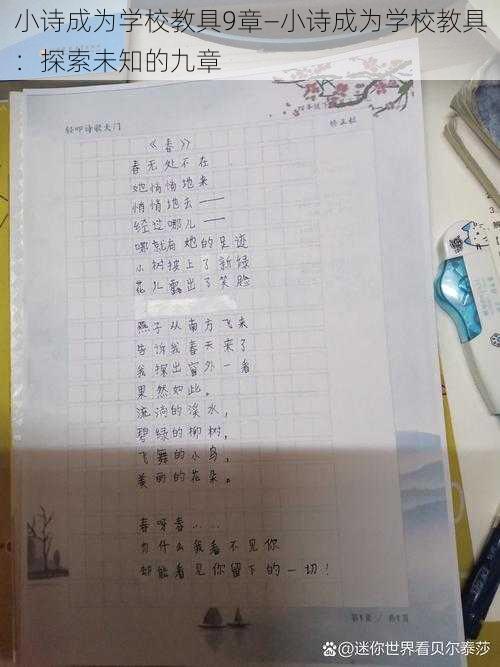 小诗成为学校教具9章—小诗成为学校教具
：探索未知的九章
轻叩诗歌大门
《春》
春无处不在
她悄悄地来
悄悄地去——
经过哪儿——
哪就有她的足迹
小树换上了新绿
花儿露出了笑脸
燕子从南方飞来
告诉我春天来了
我探出窗外一看
果然如此。
流淌的溪水，
碧绿的柳树，
飞舞的小鸟，
美丽的花朵。
春呀春……
为什么我看不见你
却能看见你留下的一切！
第1页 / 共1页
@迷你世界看贝尔泰莎